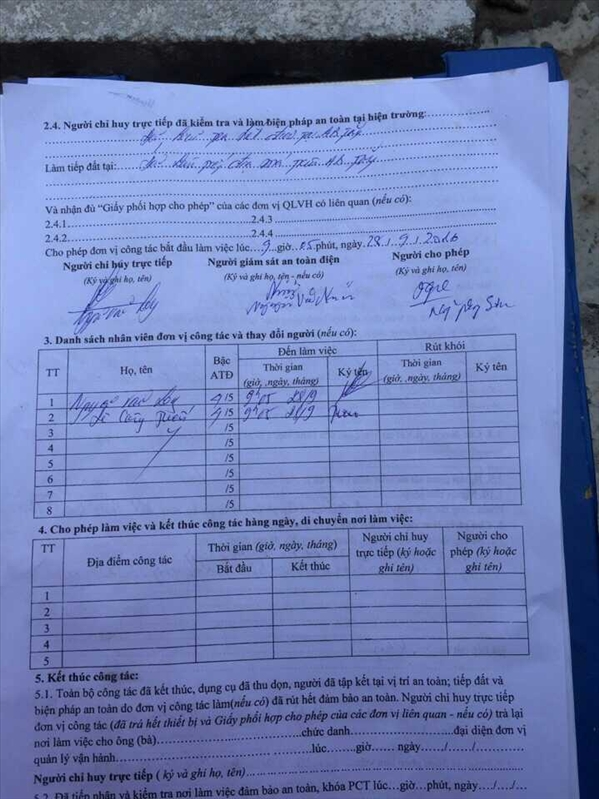 2.4. Người chỉ huy trực tiếp đã kiểm tra và làm biện pháp an toàn tại hiện trường:
Làm tiếp đất tại:
Và nhận đủ "Giấy phối hợp cho phép" của các đơn vị QLVH có liên quan (nếu có):
2.4.1 2.4.3
2.4.2 2.4.4
Cho phép đơn vị công tác bắt đầu làm việc lúc 9 giờ 05 phút, ngày 28 / 9 / 2020
Người chỉ huy trực tiếp Người giám sát an toàn điện Người cho phép
(Ký và ghi họ, tên) (Ký và ghi họ, tên - nếu có) (Ký và ghi họ, tên)
3. Danh sách nhân viên đơn vị công tác và thay đổi người (nếu có):
TT Họ, tên Bậc ATĐ Đến làm việc Rút khỏi
Thời gian (giờ, ngày, tháng) Ký tên Thời gian (giờ, ngày, tháng) Ký tên
1 4/5 9h05 28/9
2 Lê Công 4/5 9h05 28/9
3 /5
4 /5
5 /5
6 /5
7 /5
8 /5
4. Cho phép làm việc và kết thúc công tác hàng ngày, di chuyển nơi làm việc:
TT Địa điểm công tác Thời gian (giờ, ngày, tháng) Người chỉ huy trực tiếp (ký hoặc ghi tên) Người cho phép (ký hoặc ghi tên)
Bắt đầu Kết thúc
1
2
3
4
5
5. Kết thúc công tác:
5.1. Toàn bộ công tác đã kết thúc, dụng cụ đã thu dọn, người đã tập kết tại vị trí an toàn; tiếp đất và
biện pháp an toàn do đơn vị công tác làm(nếu có) đã rút hết đảm bảo an toàn. Người chỉ huy trực tiếp
đơn vị công tác (đã trả hết thiết bị và Giấy phối hợp cho phép của các đơn vị liên quan - nếu có) trả lại
nơi làm việc cho ông (bà) chức danh đại diện đơn vị
quản lý vận hành lúc giờ ngày / /
Người chỉ huy trực tiếp ( ký và ghi họ, tên)
5.2. Đã tiếp nhận và kiểm tra nơi làm việc đảm bảo an toàn, khóa PCT lúc…giờ…phút, ngày…/…/…